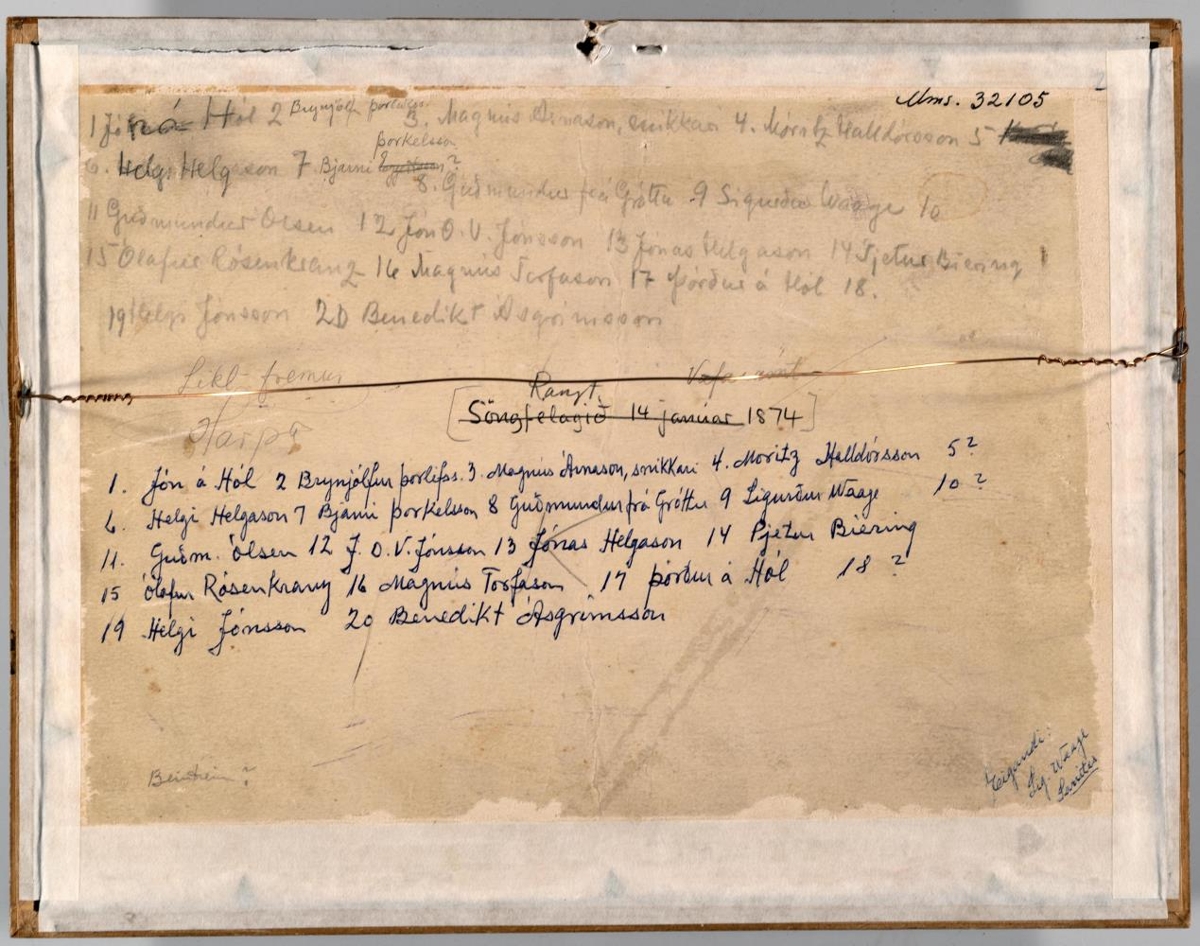 Mms. 32105
2
1 Jón á Hól 2 Brynjólf Þorláks. 3. Magnús Árnason, snikkari 4. Móritz Halldórsson 5
Þorkelsson
6. Helgi Helgason 7 Bjarni ? 8. Guðmundur frá Gróttu 9 Sigurður Waage 10
11 Guðmundur Ólsen 12 Jón O. V. Jónsson 13 Jónas Helgason 14 Pjetur Biering
15 Ólafur Rósenkranz 16 Magnús Torfason 17 Þórður á Hól 18.
19 Helgi Jónsson 20 Benedikt Ásgrímsson
Líkl. fremur
Harpa
Rangt.
[Söngfelagið 14 januar 1874]
1. Jón á Hól 2 Brynjólfur Þorlfss. 3. Magnús Árnason, snikkari 4. Moritz Halldórsson 5?
6. Helgi Helgason 7 Bjarni Þorkelsson 8 Guðmundur frá Gróttu 9 Sigurður Waage 10?
11. Guðm. Ólsen 12 J. O. V. Jónsson 13 Jónas Helgason 14 Pjetur Biering
15 Ólafur Rósenkranz 16 Magnús Torfason 17 Þórður á Hól 18?
19 Helgi Jónsson 20 Benedikt Ásgrímsson
Eigandi:
Sig. Waage
Sanitas